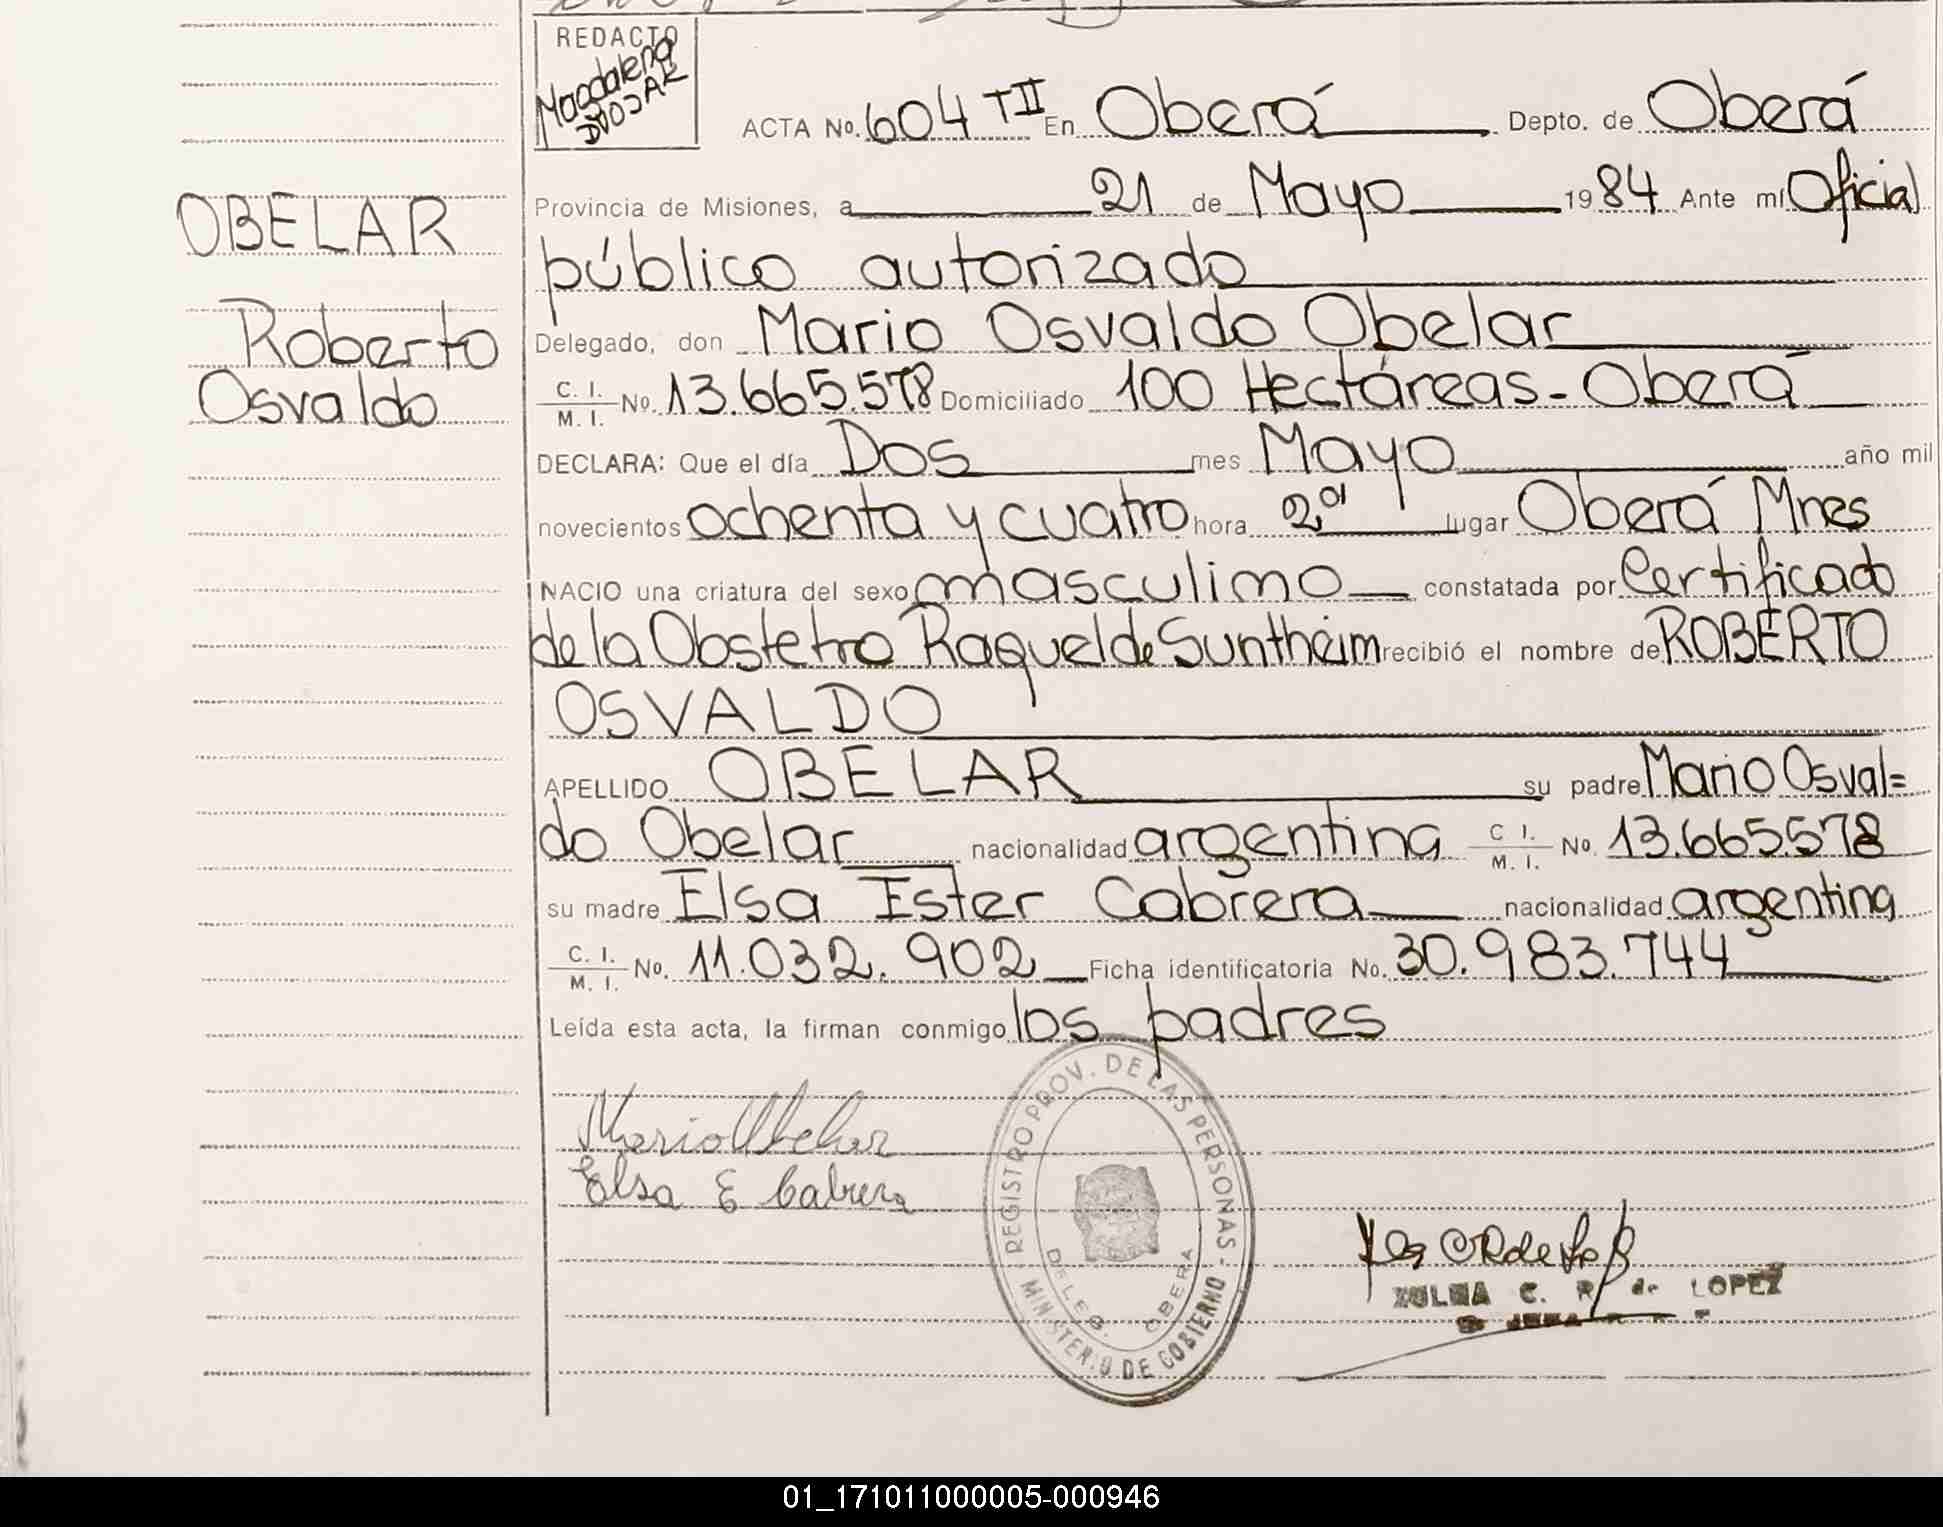 REDACTO
Magdalena
ACTA No. 604 TII En Oberá Depto. de Oberá
Provincia de Misiones, a 21 de Mayo 1984 Ante mí Oficial
público autorizado
Delegado, don Mario Osvaldo Obelar
C. I. M. I. No. 13.665.578 Domiciliado 100 Hectáreas - Oberá
DECLARA: Que el día Dos mes Mayo año mil
novecientos ochenta y cuatro hora 2,01 lugar Oberá Mnes
NACIO una criatura del sexo masculino constatada por Certificado
de la Obstetra Raquel de Suntheim recibió el nombre de ROBERTO
OSVALDO
APELLIDO OBELAR su padre Mario Osval=
do Obelar nacionalidad argentina C I. M. I. No. 13.665.578
su madre Elsa Ester Cabrera nacionalidad argentina
C. I. M. I. No. 11.032.902 Ficha identificatoria No. 30.983.744
Leída esta acta, la firman conmigo los padres
OBELAR
Roberto
Osvaldo
Mario Obelar
Elsa E Cabrera
REGISTRO PROV. DE LAS PERSONAS - MINISTERIO DE GOBIERNO
DELEG. OBERA
ZULMA C. R. de LOPEZ
01_171011000005-000946